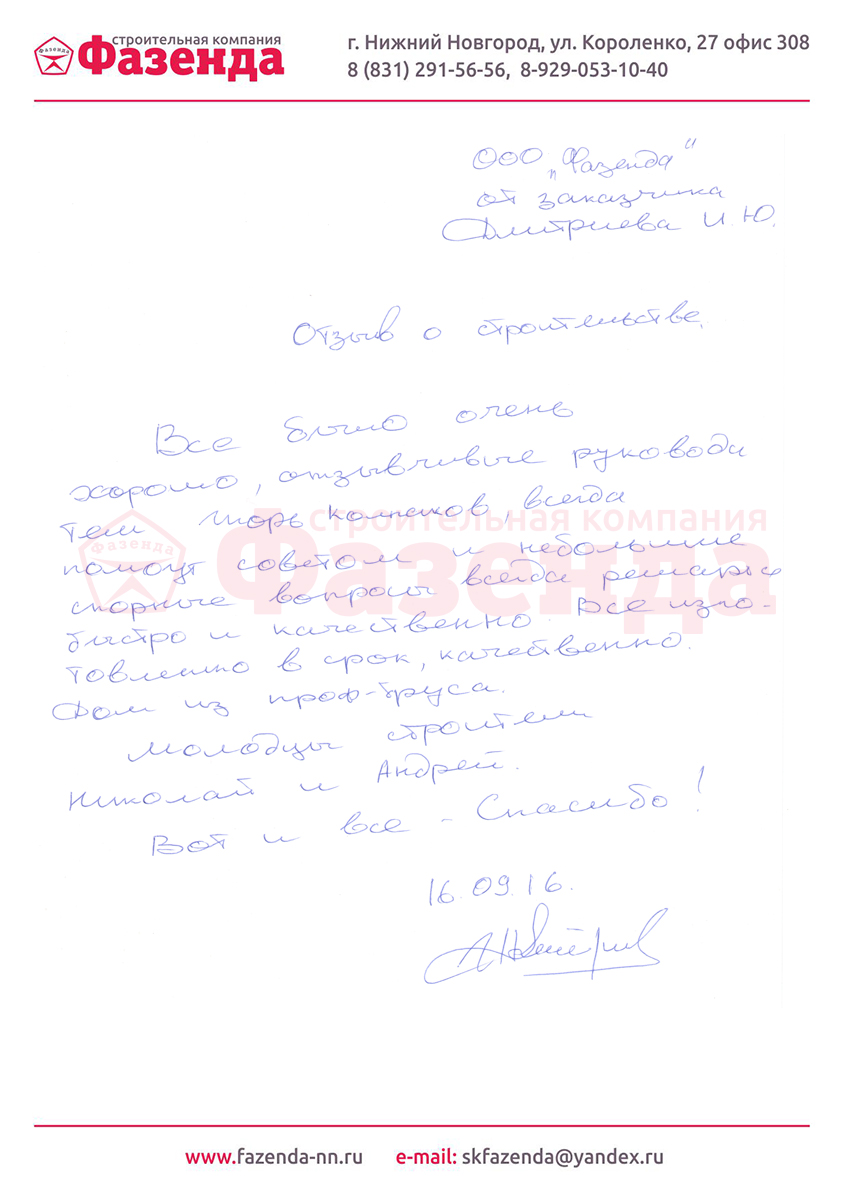 строительная компания
Фазенда
Фазенда
г. Нижний Новгород, ул. Короленко, 27 офис 308
8 (831) 291-56-56, 8-929-053-10-40
ООО „Фазенда“
от заказчика
Дмитриева И.Ю.
Отзыв о строительстве.
Все было очень
хорошо, отзывчивые руководи
тели Игорь Колпаков, всегда
помогут советом и небольшие
спорные вопросы всегда решались
быстро и качественно. Все изго-
товлено в срок, качественно.
Дом из проф-бруса.
Молодцы строители
Николай и Андрей.
Вот и все - Спасибо!
16.09.16.
строительная компания
Фазенда
Фазенда
www.fazenda-nn.ru e-mail: skfazenda@yandex.ru